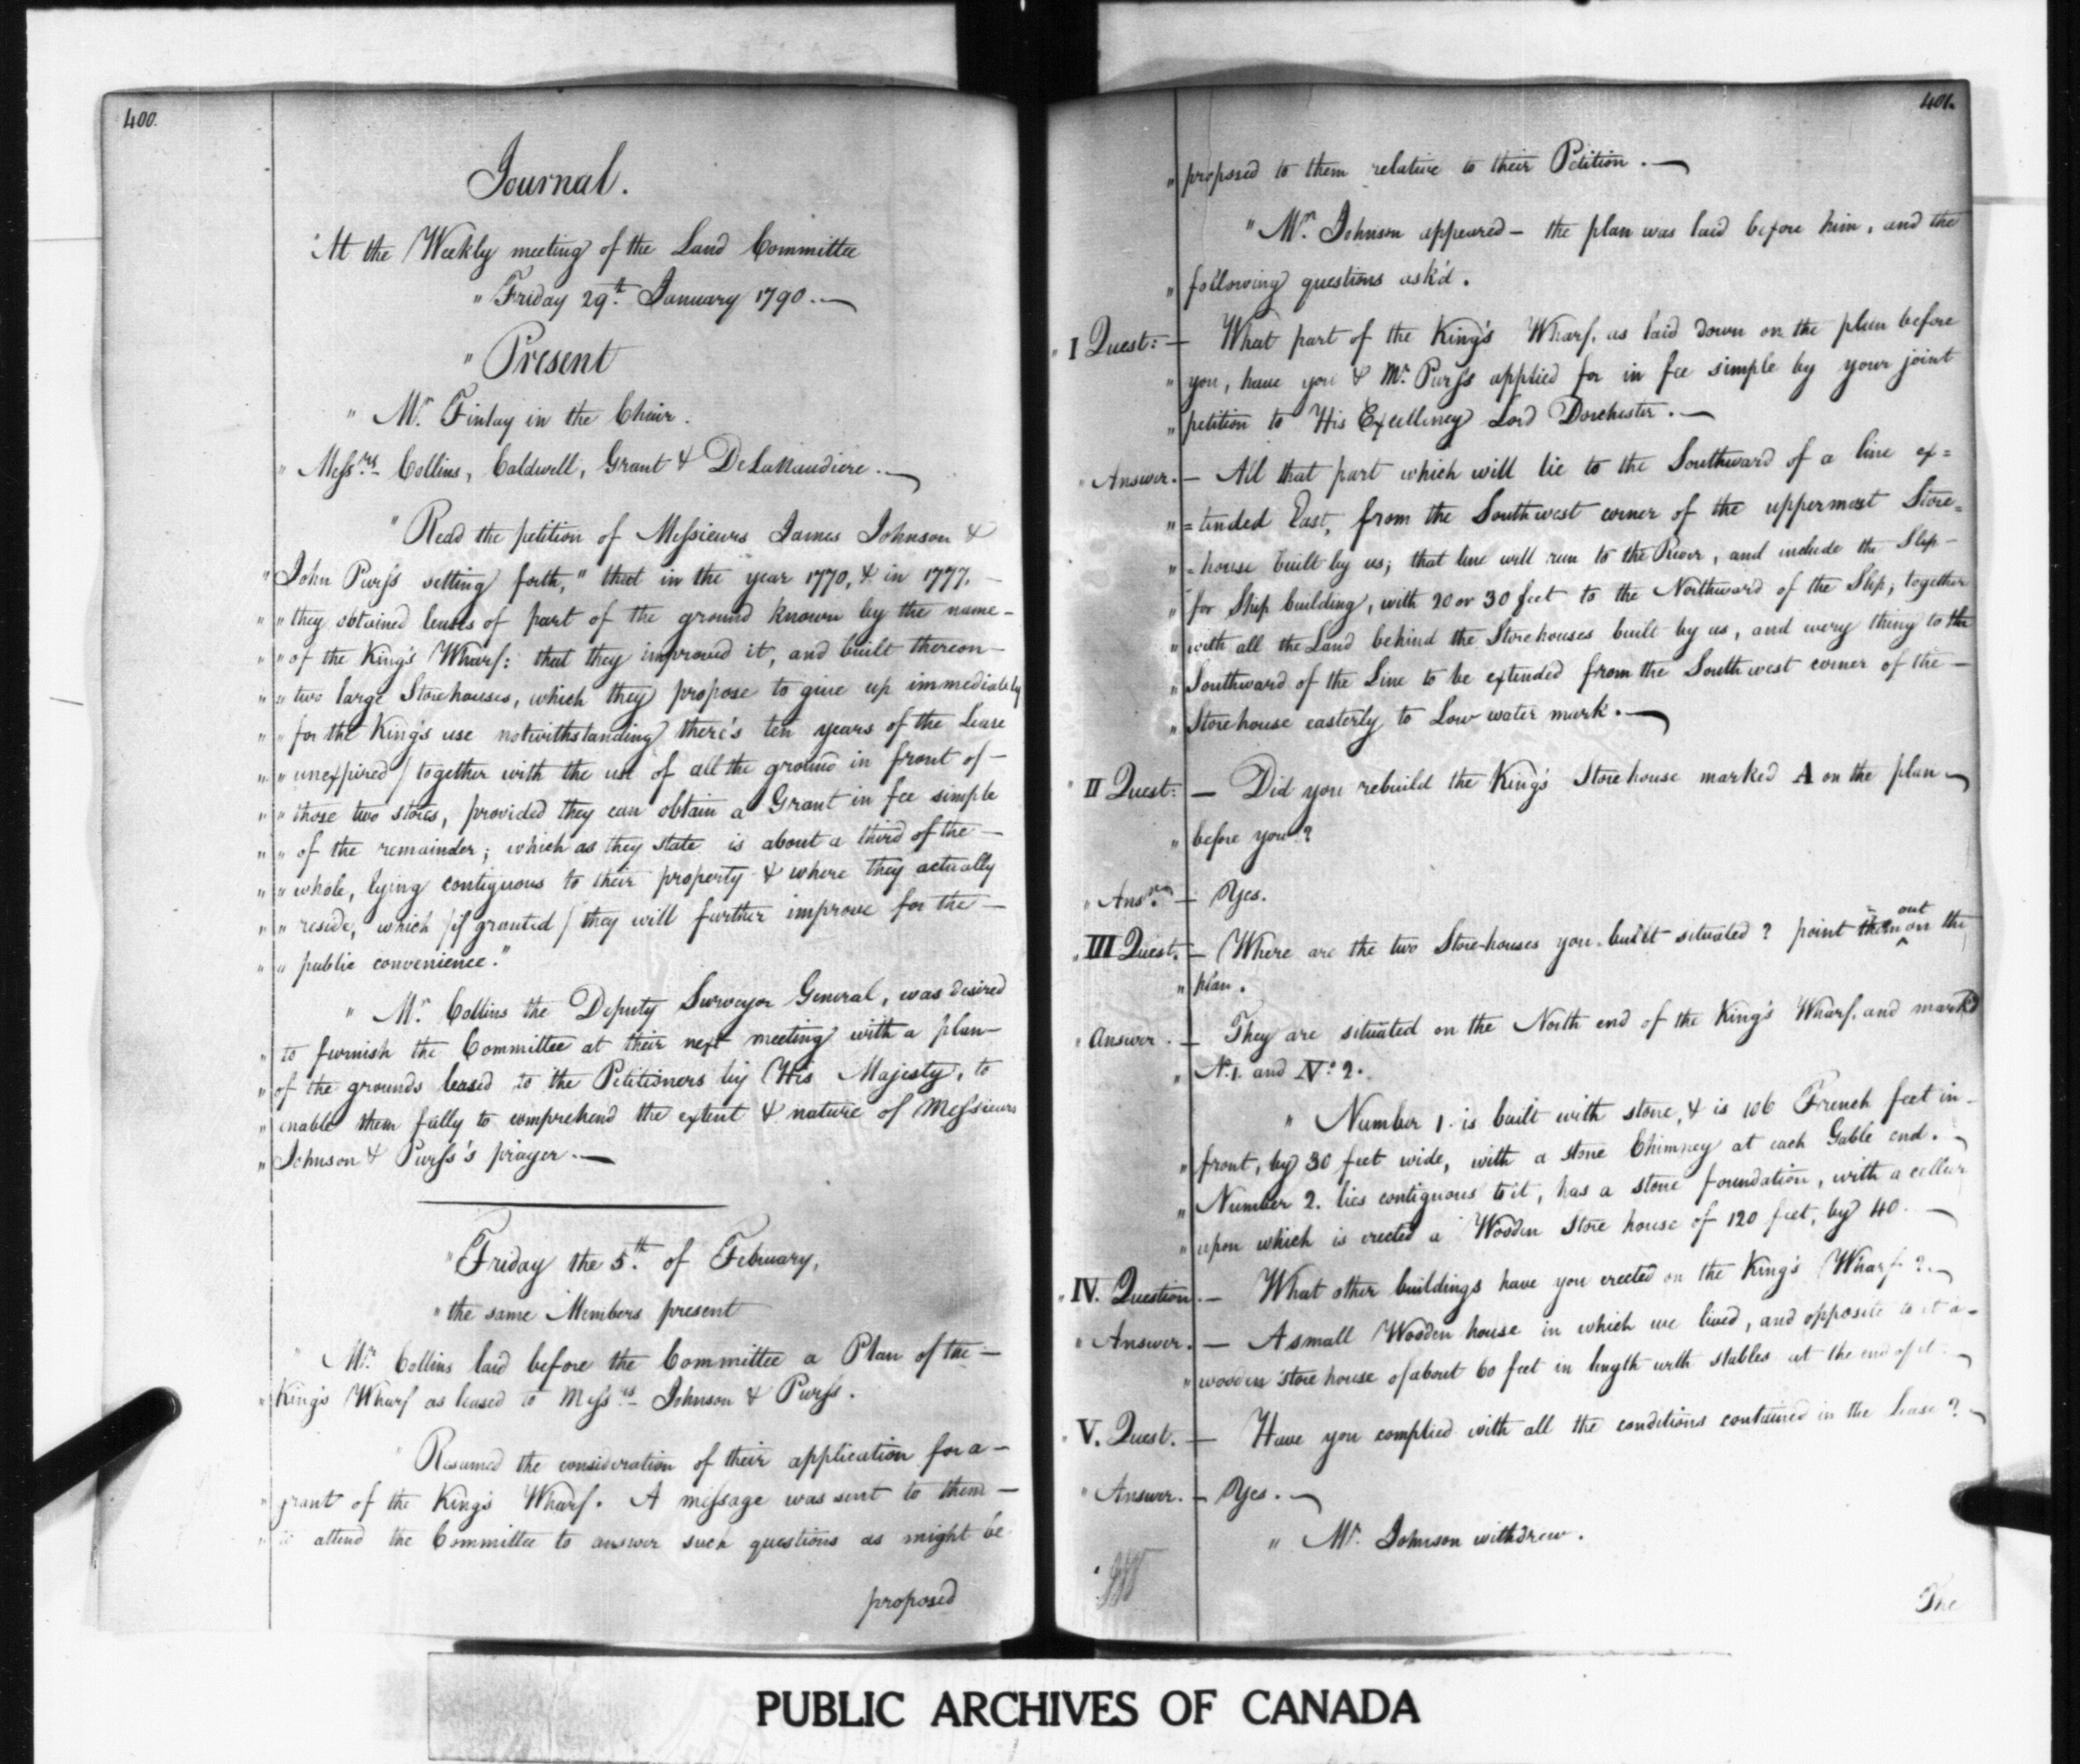 400.
Journal.
"At the Weekly meeting of the Land Committee
" Friday 29th January 1790.—
" Present
" Mr. Finlay in the Chair.
" Messrs. Collins, Caldwell, Grant & DeLanaudiere.—
" Read the petition of Messieurs James Johnson &
" John Purss setting forth, " that in the year 1770, & in 1777,—
" " they obtained leases of part of the ground known by the name—
" " of the King's Wharf: that they improved it, and built thereon—
" " two large Storehouses, which they propose to give up immediately
" " for the King's use notwithstanding there's ten years of the Lease
" " unexpired / together with the use of all the ground in front of—
" " those two stores, provided they can obtain a Grant in fee simple
" " of the remainder; which as they state is about a third of the—
" " whole, lying contiguous to their property & where they actually
" " reside, which /if granted/ they will further improve for the—
" " public convenience."
" Mr. Collins the Deputy Surveyor General, was desired
" to furnish the Committee at their next meeting with a plan—
" of the grounds leased to the Petitioners by His Majesty, to
" enable them fully to comprehend the extent & nature of Messieurs
" Johnson & Purss's prayer.—
" Friday the 5th. of February,
" the same Members present
" Mr. Collins laid before the Committee a Plan of the—
" King's Wharf as leased to Messrs. Johnson & Purss.
" Resumed the consideration of their application for a—
" grant of the King's Wharf. A message was sent to them—
" to attend the Committee to answer such questions as might be
proposed
401.
" proposed to them relative to their Petition.—
" Mr. Johnson appeared— the plan was laid before him, and the
" following questions ask'd.
" I Quest:— What part of the King's Wharf, as laid down on the plan before
" you, have you & Mr. Purss applied for in fee simple by your joint
" petition to His Excellency Lord Dorchester.—
" Answer.— All that part which will lie to the Southward of a line ex=
" =tended East, from the Southwest corner of the uppermost Store=
" =house built by us; that line will run to the River, and include the Slip—
" for Ship building, with 20 or 30 feet to the Northward of the Slip; together
" with all the Land behind the Storehouses built by us, and every thing to the
" Southward of the Line to be extended from the South west corner of the—
" Storehouse easterly to Low water mark.—
" II Quest:— Did you rebuild the King's Store house marked A on the plan—
" before you?
" Ansr.— Yes.
" III Quest.— Where are the two Store-houses you built situated? point them out on the
" plan.
" Answer.— They are situated on the North end of the King's Wharf, and mark'd
" No. 1. and No. 2.
" Number 1. is built with stone, & is 106 French feet in—
" front, by 30 feet wide, with a stone Chimney at each Gable end.—
" Number 2. lies contiguous to it, has a stone foundation, with a cellar
" upon which is erected a Wooden Store house of 120 feet, by 40.—
" IV. Question.— What other buildings have you erected on the King's Wharf?—
" Answer.— A small Wooden house in which we lived, and opposite to it a—
" wooden store house of about 60 feet in length with stables at the end of it.—
" V. Quest.— Have you complied with all the conditions contained in the Lease?—
" Answer.— Yes.—
" Mr. Johnson withdrew.
The
PUBLIC ARCHIVES OF CANADA